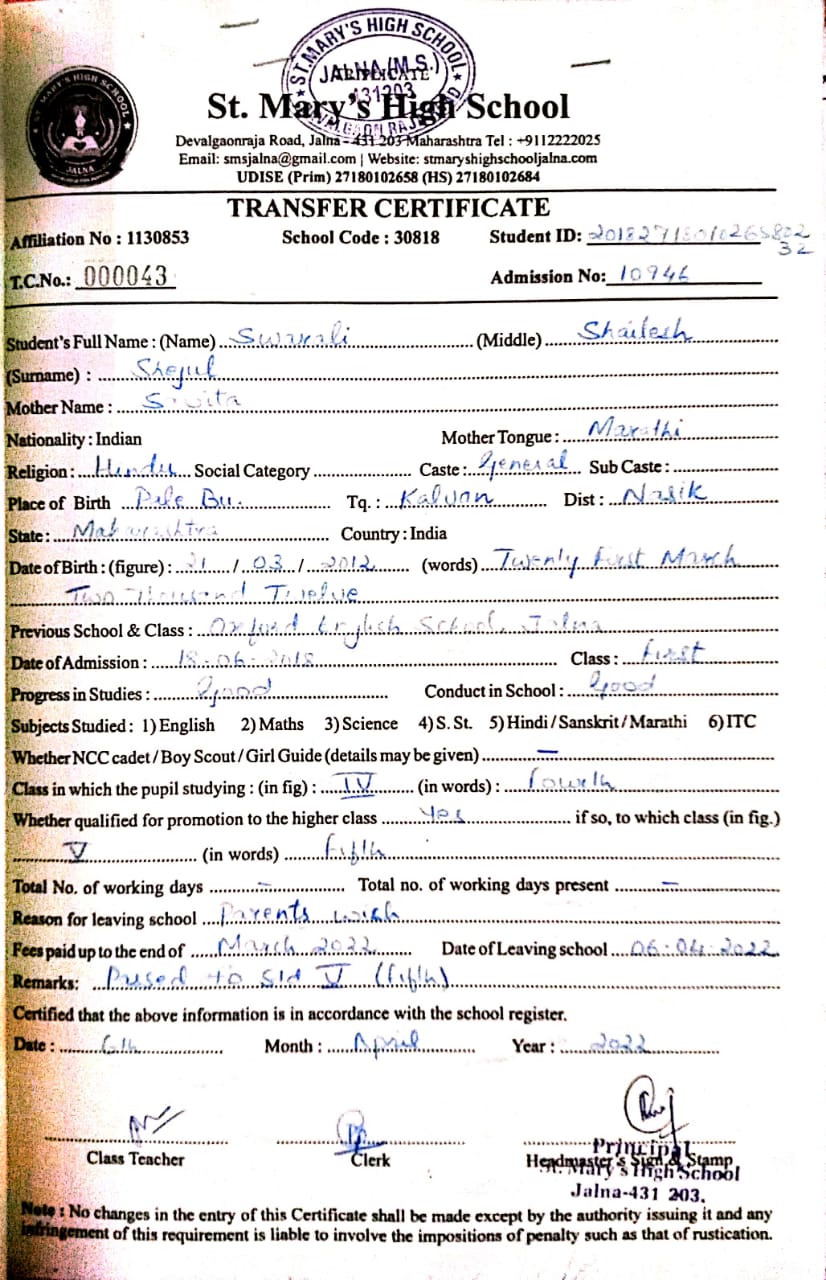 ST. MARY'S HIGH SCHOOL
JALNA (M.S.)
431203
DEVALGAON RAJA ROAD
ST. MARY'S HIGH SCHOOL
JALNA
St. Mary's High School
Devalgaonraja Road, Jalna - 431 203 Maharashtra Tel : +9112222025
Email: smsjalna@gmail.com | Website: stmaryshighschooljalna.com
UDISE (Prim) 27180102658 (HS) 27180102684
TRANSFER CERTIFICATE
Affiliation No : 1130853 School Code : 30818 Student ID:
T.C.No.: 000043 Admission No: 10946
Student's Full Name : (Name) Swarali (Middle) Shailesh
(Surname) : Shejul
Mother Name :
Nationality : Indian Mother Tongue : Marathi
Religion : Hindu Social Category Caste: General Sub Caste :
Place of Birth Pile Bu. Tq. : Kalvan Dist : Nasik
State : Maharashtra Country : India
Date of Birth : (figure) : 21 / 03 / 2012 (words) Twenty First March
Two Thousand Twelve
Previous School & Class : Oxford English School, Jalna
Date of Admission : 18-06-2018 Class : First
Progress in Studies : Good Conduct in School : Good
Subjects Studied : 1) English 2) Maths 3) Science 4) S. St. 5) Hindi / Sanskrit / Marathi 6) ITC
Whether NCC cadet / Boy Scout / Girl Guide (details may be given) —
Class in which the pupil studying : (in fig) : IV (in words) : Fourth
Whether qualified for promotion to the higher class Yes if so, to which class (in fig.)
V (in words) Fifth
Total No. of working days — Total no. of working days present —
Reason for leaving school Parents wish
Fees paid up to the end of March 2022 Date of Leaving school 06.04.2022
Remarks: Passed to Std V (fifth)
Certified that the above information is in accordance with the school register.
Date : 6th Month : April Year : 2022
Class Teacher Clerk Headmaster's Sign & Stamp
Principal
St. Mary's High School
Jalna-431 203.
Note : No changes in the entry of this Certificate shall be made except by the authority issuing it and any
infringement of this requirement is liable to involve the impositions of penalty such as that of rustication.